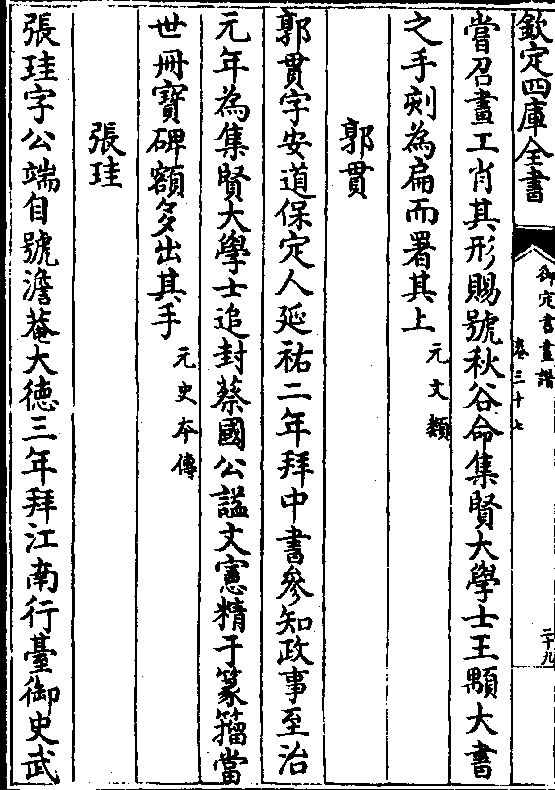 欽定四庫全書
御定書畫譜
卷三十七
二十九
嘗召畫工肖其形賜號秋谷命集賢大學士王顒大書
之手刻為扁而署其上元文類
郭貫
郭貫字安道保定人延祐二年拜中書參知政事至治
元年為集賢大學士追封蔡國公諡文憲精于篆籀當
世冊寶碑額多出其手元史本傳
張珪
張珪字公端自號澹菴大德三年拜江南行臺御史武